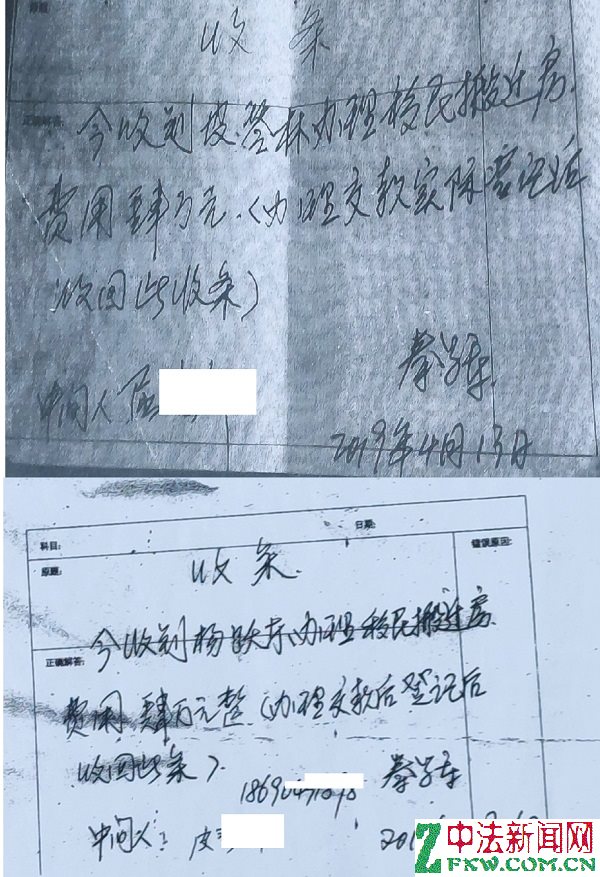 原题:
收条
正确解答:
今收到 办理移民搬迁房
费用肆万元.(办理交款实际 登记后
收回此收条)
秦学东
中间人
2019年4月13日
科目:
日期:
原题:
错误原因:
收条.
正确解答:
今收到杨 办理移民搬迁房
费用肆万元整(办理交款后登记后
收回此条).
秦学东
中间人: 皮
中法新闻网
ZFXW.COM.CN